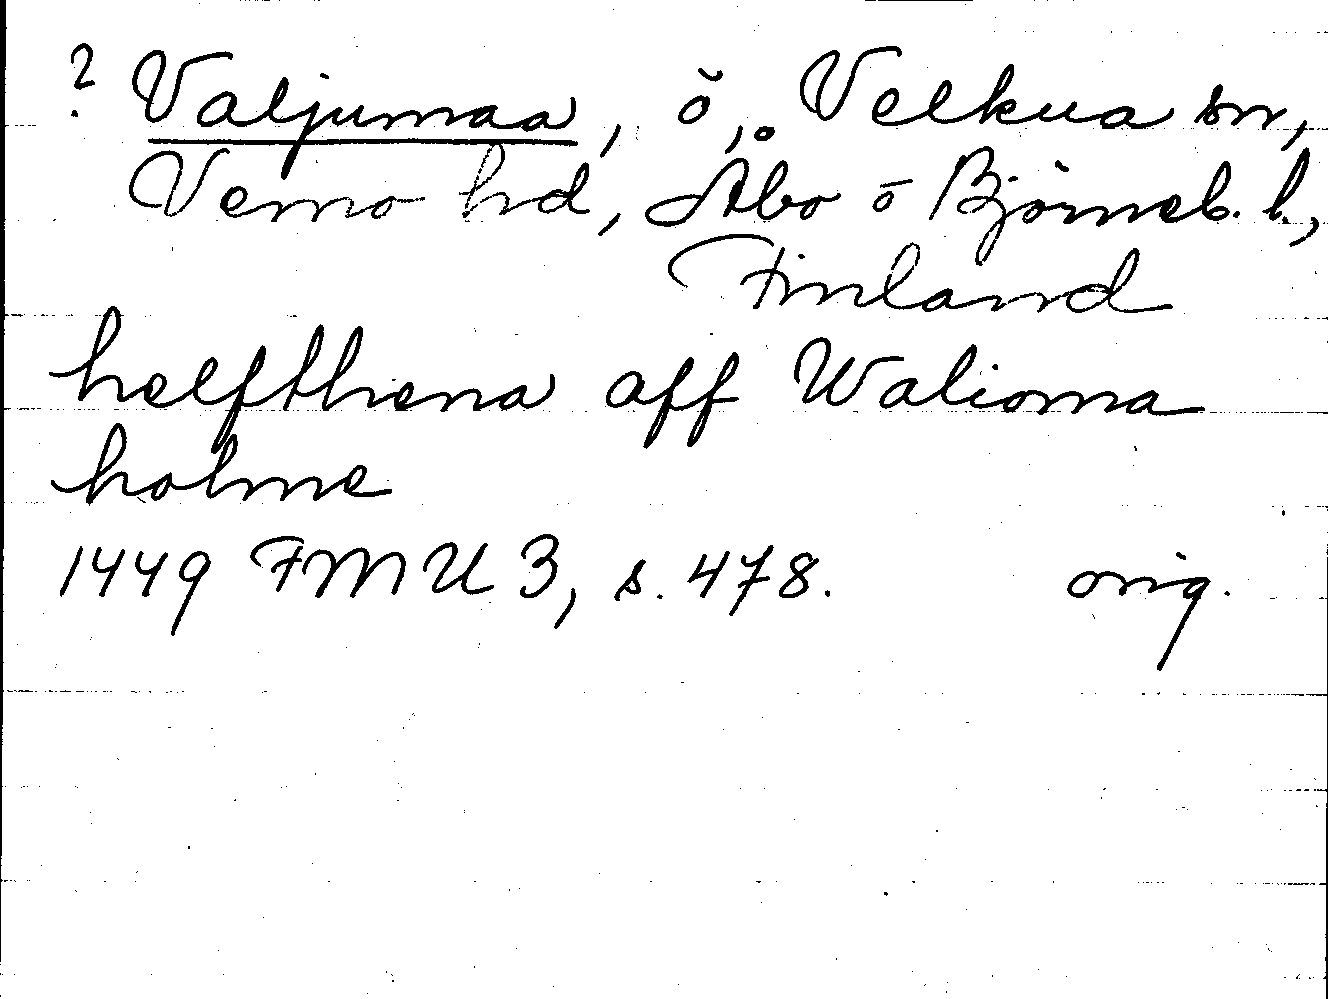 ? Valjumaa, ö, Velkua sn,
Vemo hd, Åbo o Björneb. l.,
Finland
helfthena aff Walioma
holme
1449 FMU 3, s. 478. orig.